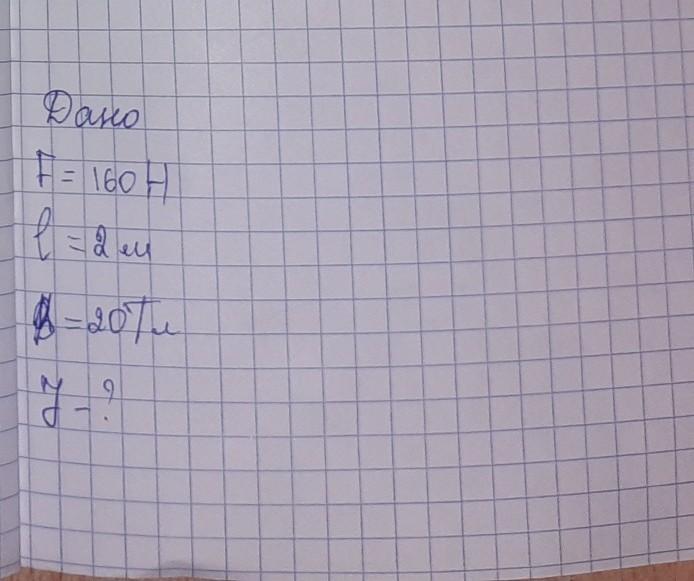 Дано
F = 160 Н
l = 2 м
B = 20 Тл
J - ?